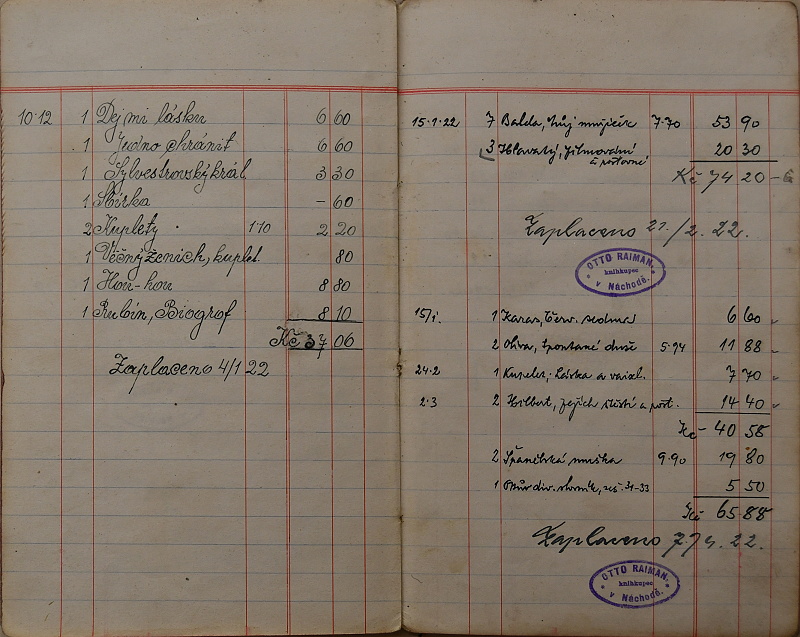 10·12 1 Dej mi lásku 6 60
1 Jedno chránit 6 60
1 Sylvestrovský král 3 30
1 Sbírka – 60
2 Kuplety 1·10 2 20
1 Věčný ženich, kuplet. 80
1 Hou-hou 8 80
1 Rubín, Biograf 8 10
Kč 37 06
Zaplaceno 4/1 22
15·1·22 7 Balda, můj mužíček 7·70 53 90
3 Hlavatý, Filmování 20 30
a poštovné
Kč 74 20
Zaplaceno 21./2. 22.
OTTO RAIMAN.
knihkupec
v Náchodě.
15/1. 1 Karas, Červ. sedma 6 60
2 Oliva, duše 5·94 11 88
24·2 1 Kupelet; Láska a 7 70
2·3 2 Hilbert, jejich štěstí a pošt. 14 40
Kč – 40 58
2 Španělská muška 9·90 19 80
1 div. slovník, seš. 31–33 5 50
Kč 65 88
Zaplaceno 7/4. 22.
OTTO RAIMAN.
knihkupec
v Náchodě.